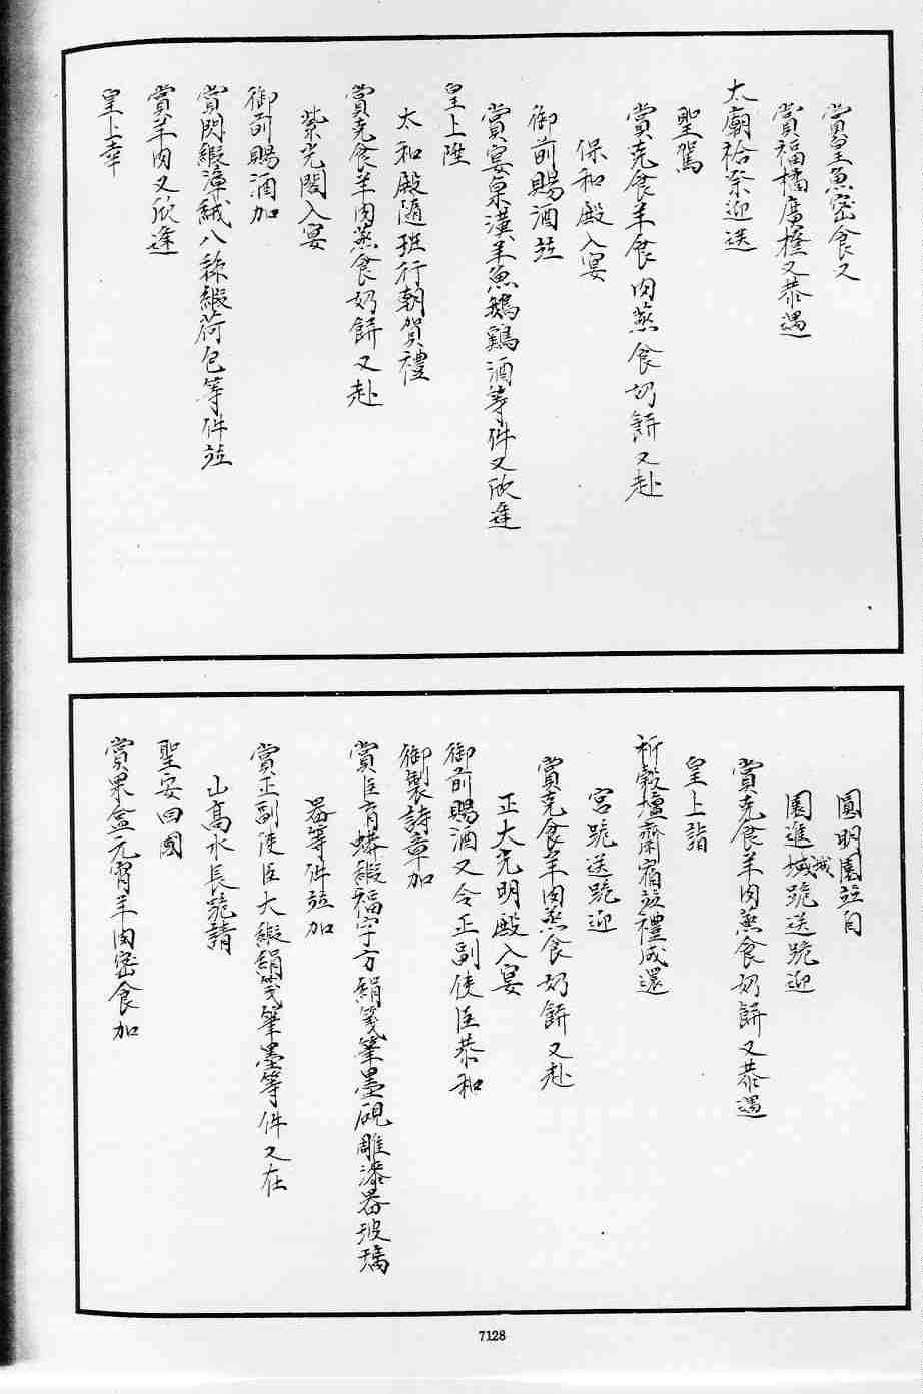 賞鱘魚密食又
賞福橘廣橙又恭遇
太廟祫祭迎送
聖駕
賞克食羊食肉蒸食奶餅又赴
保和殿入宴
御前賜酒竝
賞宴桌漢羊魚鵝鷄酒等件又欣逢
皇上陞
太和殿隨班行朝賀禮
賞克食羊肉蒸食奶餅又赴
紫光閣入宴
御前賜酒加
賞閃緞漳絨八絲緞荷包等件竝
賞羊肉又欣逢
皇上幸
圓明園竝自
園進城跪送跪迎
賞克食羊肉蒸食奶餅又恭遇
皇上詣
祈穀壇齋宿竝禮成還
宮跪送跪迎
賞克食羊肉蒸食奶餅又赴
正大光明殿入宴
御前賜酒又令正副使臣恭和
御製詩章加
賞臣育蟒緞福字方絹箋筆墨硯雕漆器玻璃
器等件竝加
賞正副使臣大緞絹箋筆墨等件又在
山髙水長跪請
聖安回國
賞果盒元宵羊肉密食加
7128